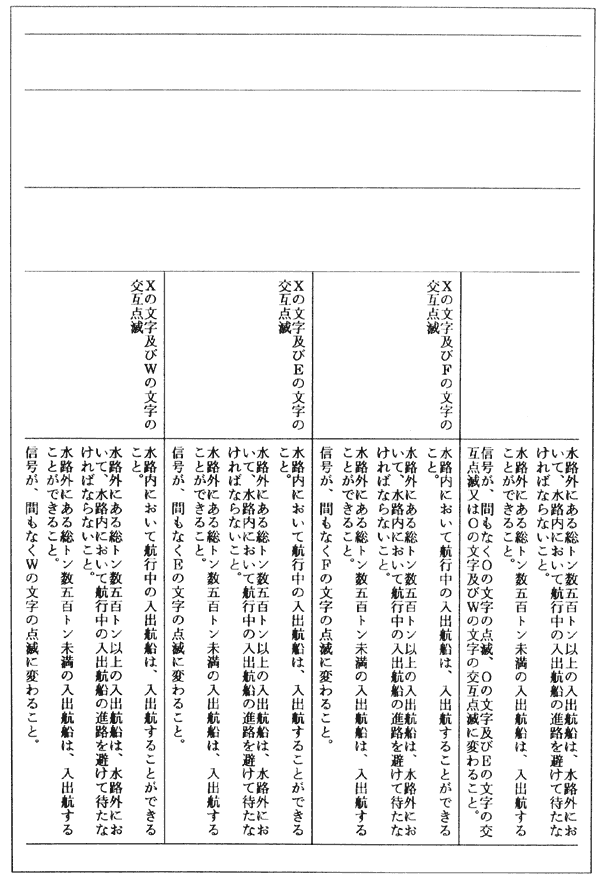 水路外にある総トン数五百トン以上の入出航船は、水路外にお
いて、水路内において航行中の入出航船の進路を避けて待たな
ければならないこと。
水路外にある総トン数五百トン未満の入出航船は、入出航する
ことができること。
信号が、間もなくOの文字の点滅、Oの文字及びEの文字の交
互点滅又はOの文字及びWの文字の交互点滅に変わること。
Xの文字及びFの文字の
交互点滅
水路内において航行中の入出航船は、入出航することができる
こと。
水路外にある総トン数五百トン以上の入出航船は、水路外にお
いて、水路内において航行中の入出航船の進路を避けて待たな
ければならないこと。
水路外にある総トン数五百トン未満の入出航船は、入出航する
ことができること。
信号が、間もなくFの文字の点滅に変わること。
Xの文字及びEの文字の
交互点滅
水路内において航行中の入出航船は、入出航することができる
こと。
水路外にある総トン数五百トン以上の入出航船は、水路外にお
いて、水路内において航行中の入出航船の進路を避けて待たな
ければならないこと。
水路外にある総トン数五百トン未満の入出航船は、入出航する
ことができること。
信号が、間もなくEの文字の点滅に変わること。
Xの文字及びWの文字の
交互点滅
水路内において航行中の入出航船は、入出航することができる
こと。
水路外にある総トン数五百トン以上の入出航船は、水路外にお
いて、水路内において航行中の入出航船の進路を避けて待たな
ければならないこと。
水路外にある総トン数五百トン未満の入出航船は、入出航する
ことができること。
信号が、間もなくWの文字の点滅に変わること。